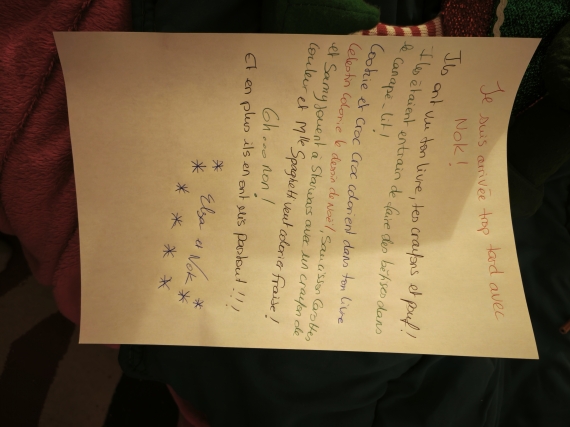 Je suis arrivée trop tard avec
Nok!
Ils ont vu ton livre, tes crayons et pouf!
ils étaient entrain de faire des bêtises dans
le canapé-lit!
Cookie et Croc Croc colorient dans ton livre
Celestin colorie le dessin de Noël! Saucisson Gambas
et Samy jouent à Starwars avec un crayon de
couleur et Mlle Spaghetti veut colorier fraise!
Oh non!
Et en plus ils en ont mis partout!!!
Elsa et Nok